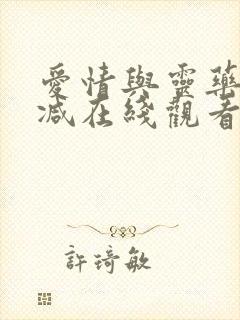 愛情與靈藥
減在綫觀看
許琦敏